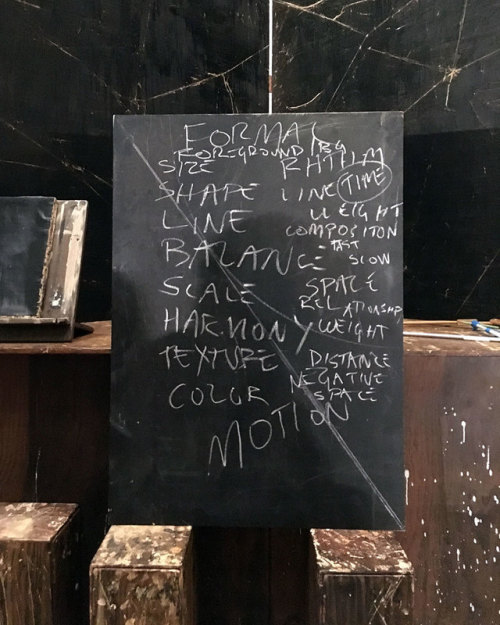 FORMAL
FOREGROUND/BG
SIZE
SHAPE
LINE
BALANCE
SCALE
HARMONY
TEXTURE
COLOR
RHTHM
LINE TIME
WEIGHT
COMPOSITON
FAST
SLOW
SPACE
RELATIONSHIP
WEIGHT
DISTANCE
NEGATIVE
SPACE
MOTION